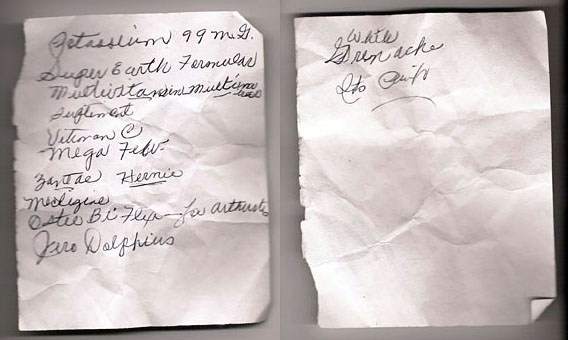 Potassium 99 m.G.
Super Earth Formulas
Multivitamin Multimin
Suplement
Vitiman C
Mega Fev
Zantac Hernie
Medigine
Osteo Bi Flex for arthustis
Jaro Dolphius
White
Grenache